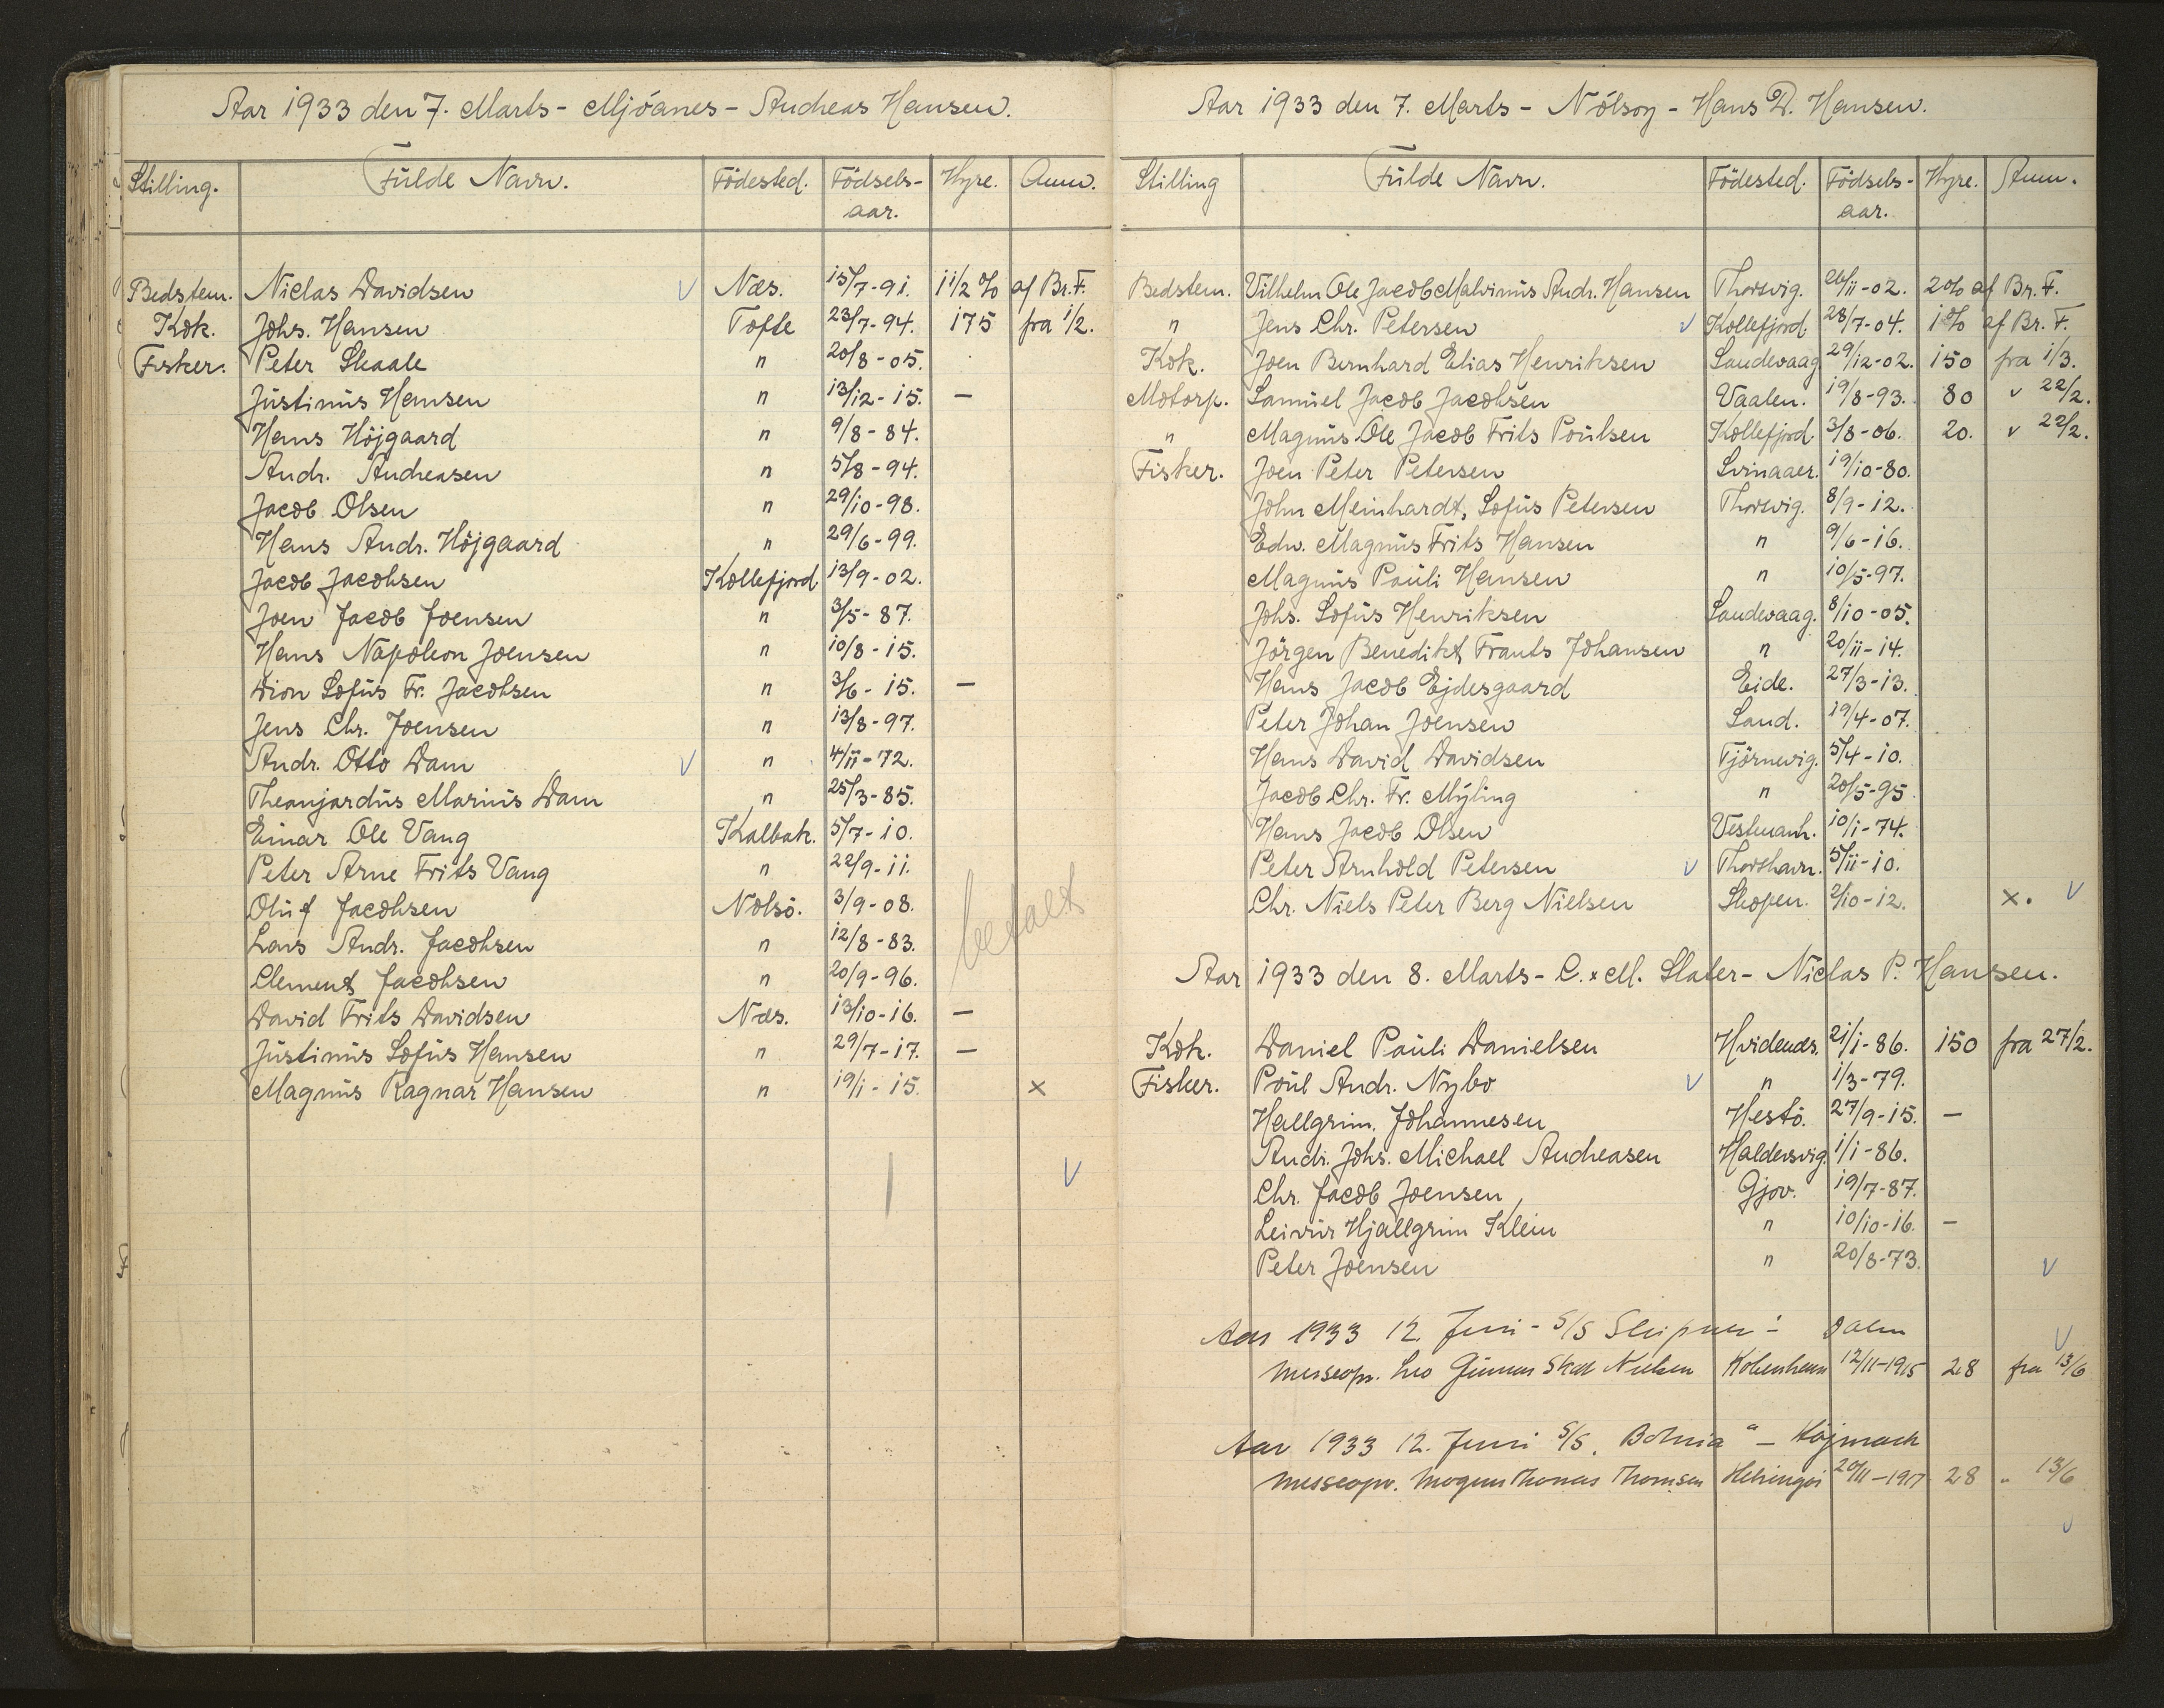 Aar 1933 den 7. Marts - Mjóanes - Andreas Hansen.
Stilling. Fulde Navn. Födested. Födsels-aar. Hyre. Anm.
Bedstem. Niclas Davidsen V Næs. 15/7-91. 1 1/2 % af Br.F.
Kok. Johs. Hansen Tofte 23/7-94. 175 fra 1/2.
Fisker. Peter Skaale " 20/8-05.
Justinus Hansen " 13/12-15. —
Hans Höjgaard " 9/8-84.
Andr. Andreasen " 5/8-94.
Jacob Olsen " 29/10-98.
Hans Andr. Höjgaard " 29/6-99.
Jacob Jacobsen Kollefjord 13/9-02.
Joen Jacob Joensen " 3/5-87.
Hans Napoleon Joensen " 10/8-15.
Dion Sofus Fr. Jacobsen " 3/6-15. —
Jens Chr. Joensen " 13/8-97.
Andr. Otto Dam V " 4/11-72.
Theanjardus Marius Dam " 25/3-85.
Einar Ole Vang Kalbak. 5/7-10.
Peter Arne Frits Vang " 22/9-11.
Oluf Jacobsen Nolsö. 3/9-08.
betalt
Lars Andr. Jacobsen " 12/8-83.
Clement Jacobsen " 20/9-96.
David Frits Davidsen Næs. 13/10-16. —
Justinus Sofus Hansen " 29/7-17. —
Magnus Ragnar Hansen " 19/1-15. ×
V
Aar 1933 den 7. Marts - Nólsoy - Hans D. Hansen.
Stilling Fulde Navn. Födested. Födsels-aar. Hyre. Anm.
Bedstem. Vilhelm Ole Jacob Malvinus Andr. Hansen Thorsvig. 26/11-02. 2% af Br.F.
" Jens Chr. Petersen V Kollefjord. 28/7-04. 1% af Br.F.
Kok. Joen Bernhard Elias Henriksen Sandevaag 29/12-02. 150 fra 1/3.
Motorp. Samuel Jacob Jacobsen Vaalen. 19/8-93. 80 " 22/2.
" Magnus Ole Jacob Frits Poulsen Kollefjord. 3/8-06. 20. " 22/2.
Fisker. Joen Peter Petersen Svinaaer. 19/10-80.
John Meinhardt, Sofus Petersen Thorsvig. 8/9-12.
Edv. Magnus Frits Hansen " 9/6-16.
Magnus Pauli Hansen " 10/5-97.
Johs. Sofus Henriksen Sandevaag. 8/10-05.
Jörgen Benedikt Frants Johansen " 20/11-14.
Hans Jacob Ejdesgaard Eide. 27/3-13.
Peter Johan Joensen Sand. 19/4-07.
Hans David Davidsen Tjörnevig. 5/4-10.
Jacob Chr. Fr. Mýling " 20/5-95
Hans Jacob Olsen Vestmanh. 10/1-74.
Peter Arnhold Petersen V Thorshavn. 5/11-10.
Chr. Niels Peter Berg Nielsen Skopen. 2/10-12. ×. V
Aar 1933 den 8. Marts - C. & M. Slater - Niclas P. Hansen.
Kok. Daniel Pauli Danielsen Hvidenæs. 21/1-86. 150 fra 27/2.
Fisker. Poul Andr. Nybo V " 1/3-79.
Hallgrim. Johannesen Hestö. 27/9-15. —
Andr. Johs. Michael Andreasen Haldersvig. 1/1-86.
Chr. Jacob Joensen Gjov. 19/7-87.
Leivur Hjallgrim Klein " 10/10-16. —
Peter Joensen " 20/8-73. V
Aar 1933 12. Juni - S/S Sleipner - V
Messeopv. Gunnar Nielsen Kobenhavn 12/11-1915 28 fra 13/6
Aar 1933 12. Juni S/S. Botnia" - Höjmark
Messeopv. Mogens Thomas Thomsen Helsingør 20/11-1917 28 " 13/6
V